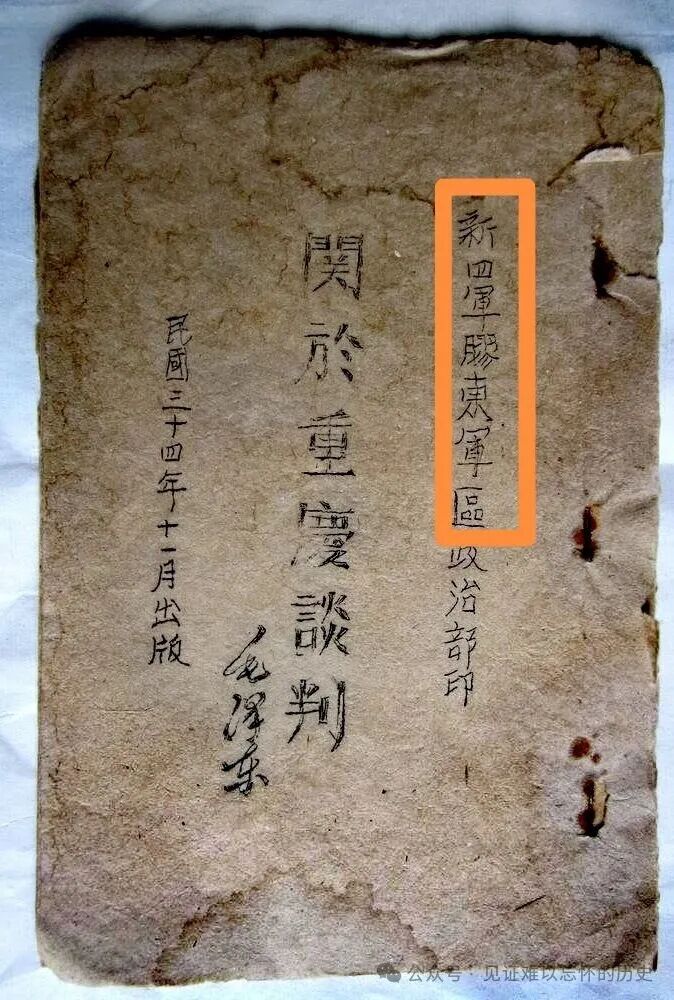 新四軍膠東軍區政治部印
関於重慶談判
毛泽东
民國三十四年十一月出版
公众号·见证难以忘怀的历史